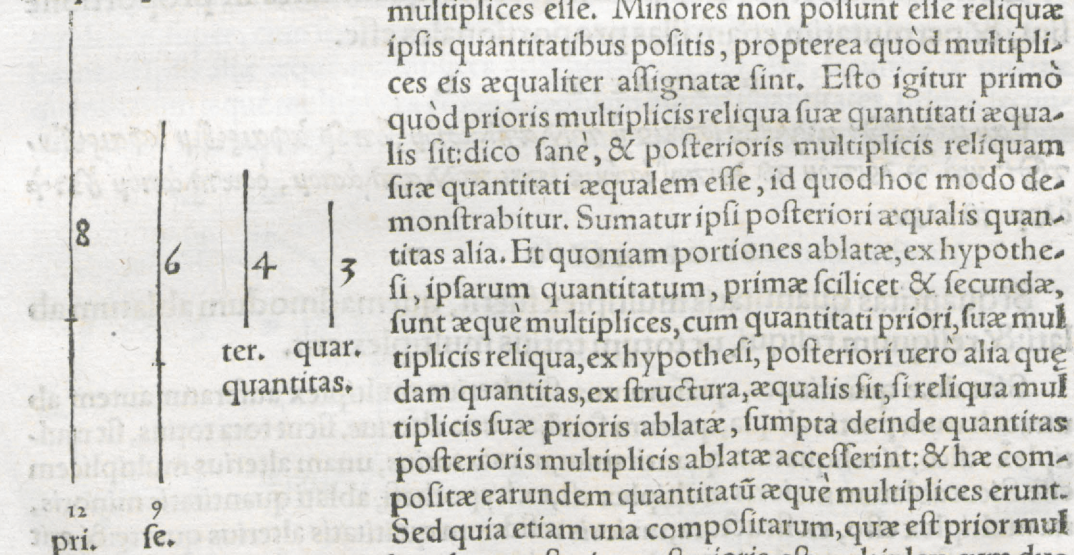 multiplices eſſe. Minores non poſſunt eſſe reliquæ
ipſis quantitatibus poſitis, propterea quod multipli-
ces eis æqualiter aſſignatæ ſint. Eſto igitur primò
quòd prioris multiplicis reliqua ſuæ quantitati æqua-
lis ſit: dico ſanè, & poſterioris multiplicis reliquam
ſuæ quantitati æqualem eſſe, id quod hoc modo de-
monſtrabitur. Sumatur ipſi poſteriori æqualis quan-
titas alia. Et quoniam portiones ablatæ, ex hypothe-
ſi, ipſarum quantitatum, primæ ſcilicet & ſecundæ,
ſunt æquè multiplices, cum quantitati priori, ſuæ mul
tiplicis reliqua, ex hypotheſi, poſteriori uerò alia quę
dam quantitas, ex ſtructura, æqualis ſit, ſi reliqua mul
tiplicis ſuæ prioris ablatæ, ſumpta deinde quantitas
poſterioris multiplicis ablatæ acceſſerint: & hæ com-
poſitæ earundem quantitatũ æquè multiplices erunt.
Sed quia etiam una compoſitarum, quæ eſt prior mul
8
6
4
3
ter. quar.
quantitas.
12
pri. ſe.